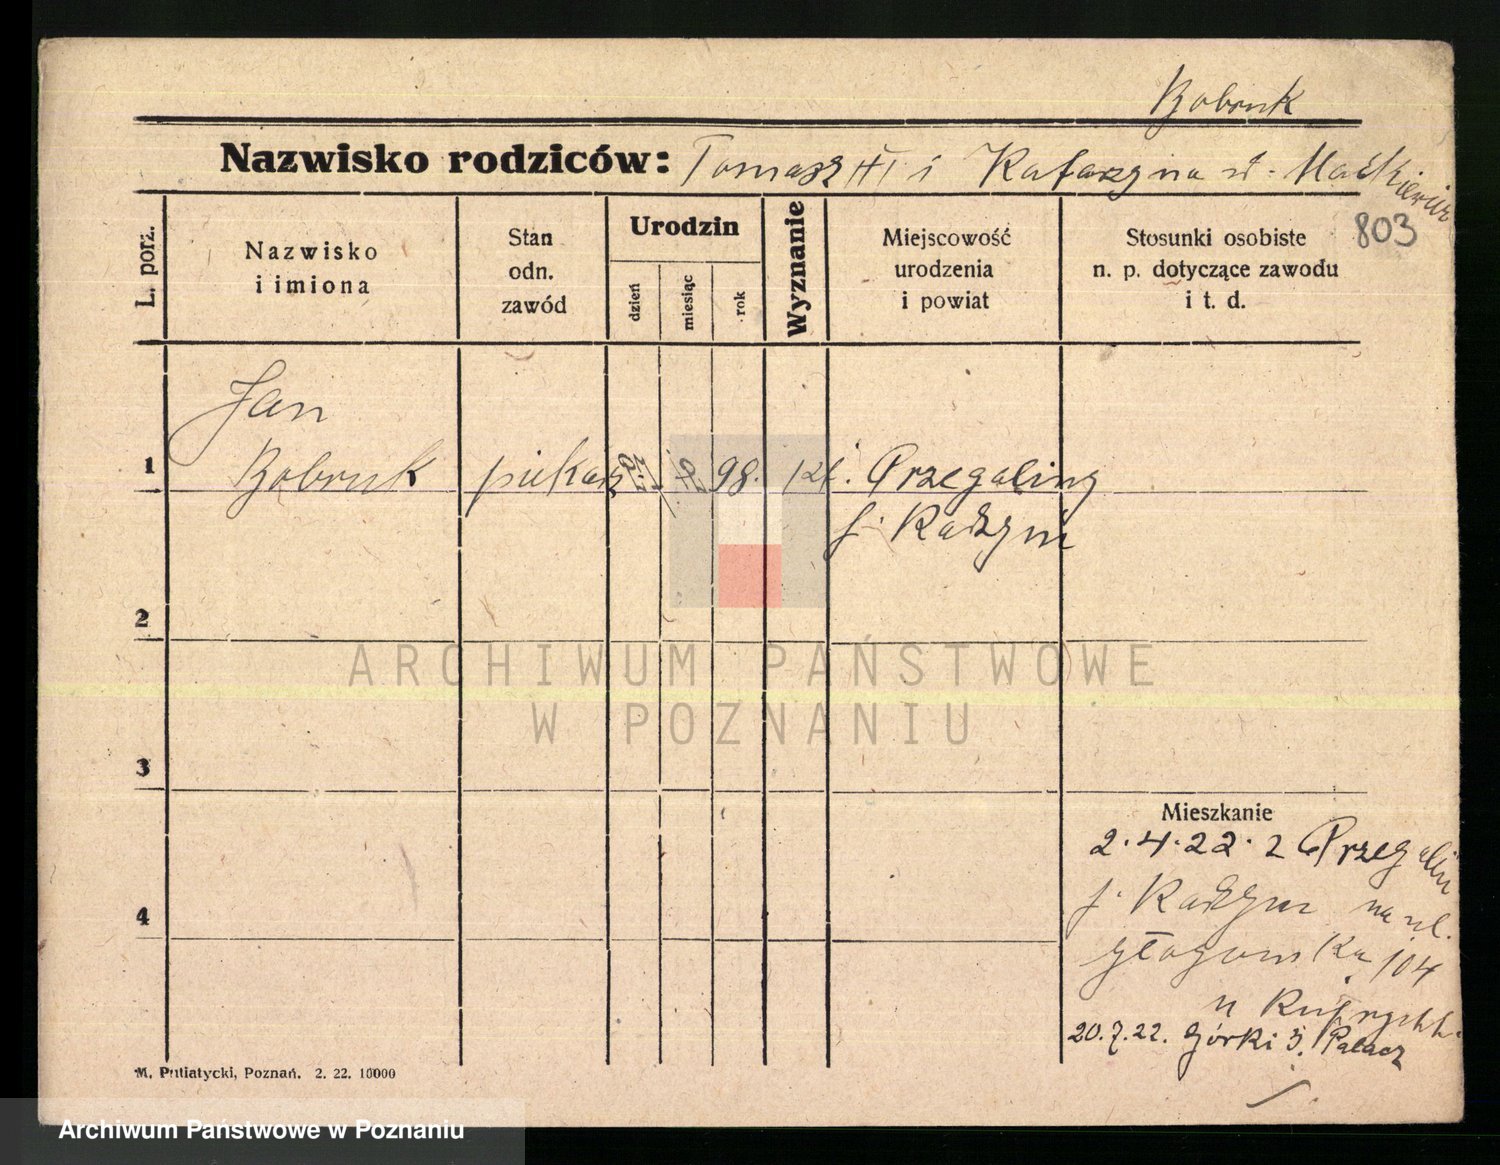 Bobruk
Nazwisko rodziców: Tomasz i Katarzyna
803
L. porz.
Nazwisko
i imiona
Stan
odn.
zawód
Urodzin
dzień
miesiąc
rok
Wyznanie
Miejscowość
urodzenia
i powiat
Stosunki osobiste
n. p. dotyczące zawodu
i t. d.
Jan
1 Bobruk piekarz 98. rzk. Przegaliny
p. Radzyń
2
ARCHIWUM PAŃSTWOWE
W POZNANIU
3
Mieszkanie
2.4.22. z Przegalin
p. Radzyn na ul.
4
głogowska 104
u
20.7.22. Górki 3. Palacz
M. Putiatycki, Poznań. 2. 22. 10000
Archiwum Państwowe w Poznaniu